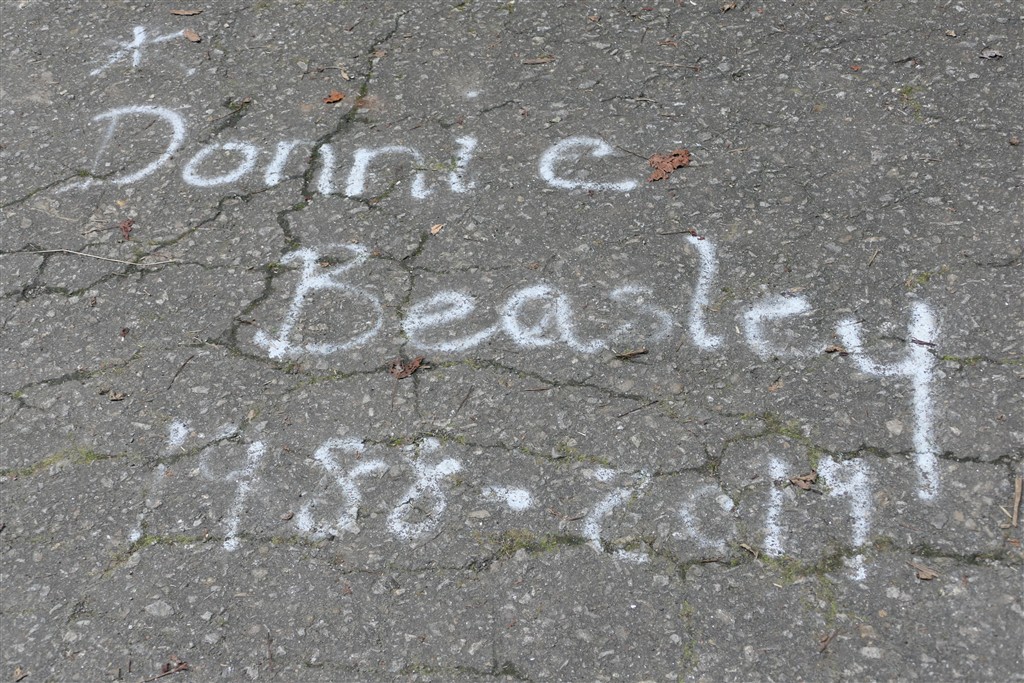 *
Donnie
Beasley
1988-2014